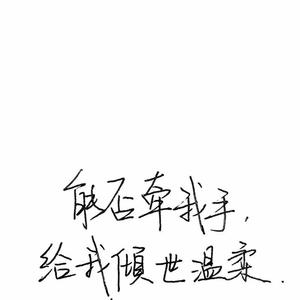 能否牵我手,
给我傾世温柔.